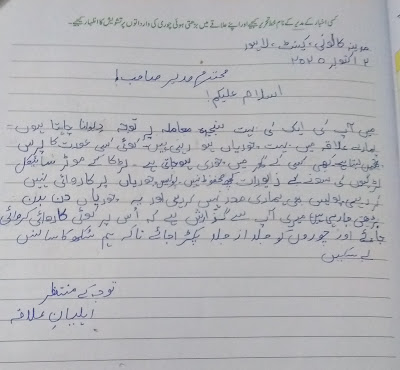 کسی اخبار کے مدیر کے نام خط تحریر کیجیے اور اپنے علاقے میں بڑھتی ہوئی چوری کی وارداتوں پر تشویش کا اظہار کیجیے۔
کالونی، کینٹ، لاہور
۲ اکتوبر ۲۰۲۵
محترم مدیر صاحب!
اسلام علیکم!
میں آپ کی ایک بہت سنجیدہ معاملہ پر توجہ دلانا چاہتا ہوں۔
ہمارے علاقہ میں بہت چوریاں ہو رہی ہیں۔ کوئی کسی عورت کا پرس
کبھی کسی کے گھر میں چوری ہو جاتی ہے۔ لڑکا کے موٹر سائیکل
عورتوں کی سونے کے زیورات کچھ محفوظ نہیں۔ پولیس چوریاں پر کاروائی نہیں
پولیس بھی ہماری مدد نہیں کر رہی اور یہ چوریاں دن بدن
بڑھتی جا رہی ہیں۔ میری آپ سے گزارش ہے کہ اُس پر کوئی کاروائی کروائی
جائے اور چوروں کو جلد از جلد پکڑا جائے تاکہ ہم سُکھ کا سانس
لے سکیں
توجہ کے منتظر
اہلیانِ علاقہ